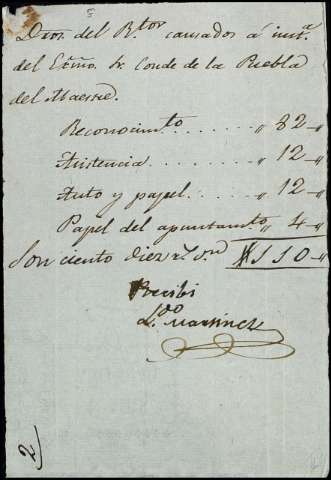 Dros. del Rtor causados á insta.
del Exmo. Sr. Conde de la Puebla
del Maestre.
Reconocimto . . . . . . . " 82 - "
Asistencia . . . . . . . " 12 - "
Auto y papel . . . . . . " 12 - "
Papel del apuntamto. " 4 - "
Son ciento diez rs. vn 110 - "
Recibi
Ldo Martinez
2